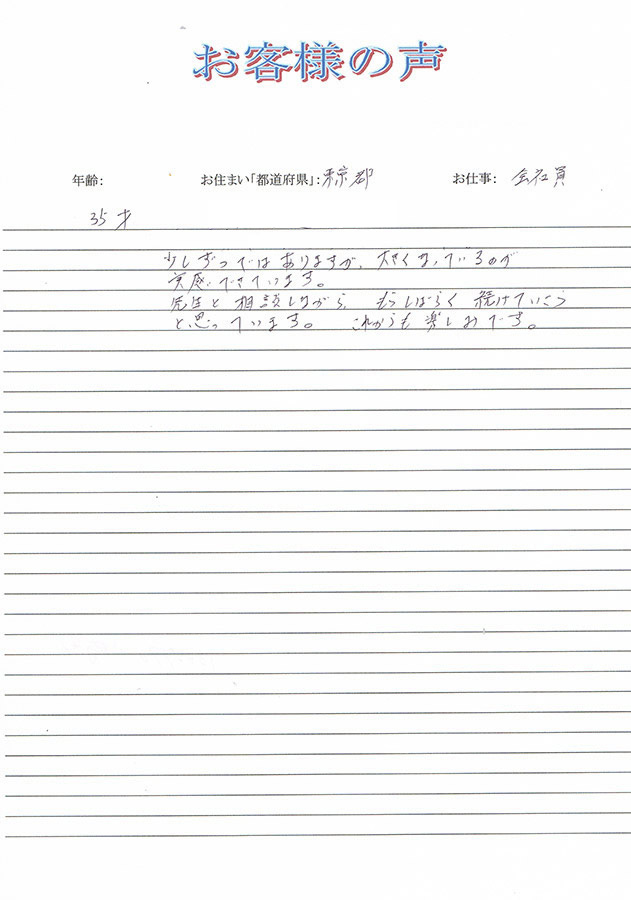 お客様の声
年齢: お住まい「都道府県」:東京都 お仕事: 会社員
35才
少しずつではありますが、大きくなっているのが
実感できています。
先生と相談しながら、もうしばらく続けていこう
と思っています。 これからも楽しみです。